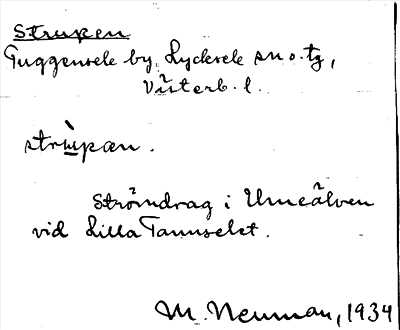 Strupen
Tuggensele by, Lycksele sn o. tg,
Västerb. l.
strùpan.
Strömdrag i Umeälven
vid Lilla Tannselet.
M. Neuman, 1934